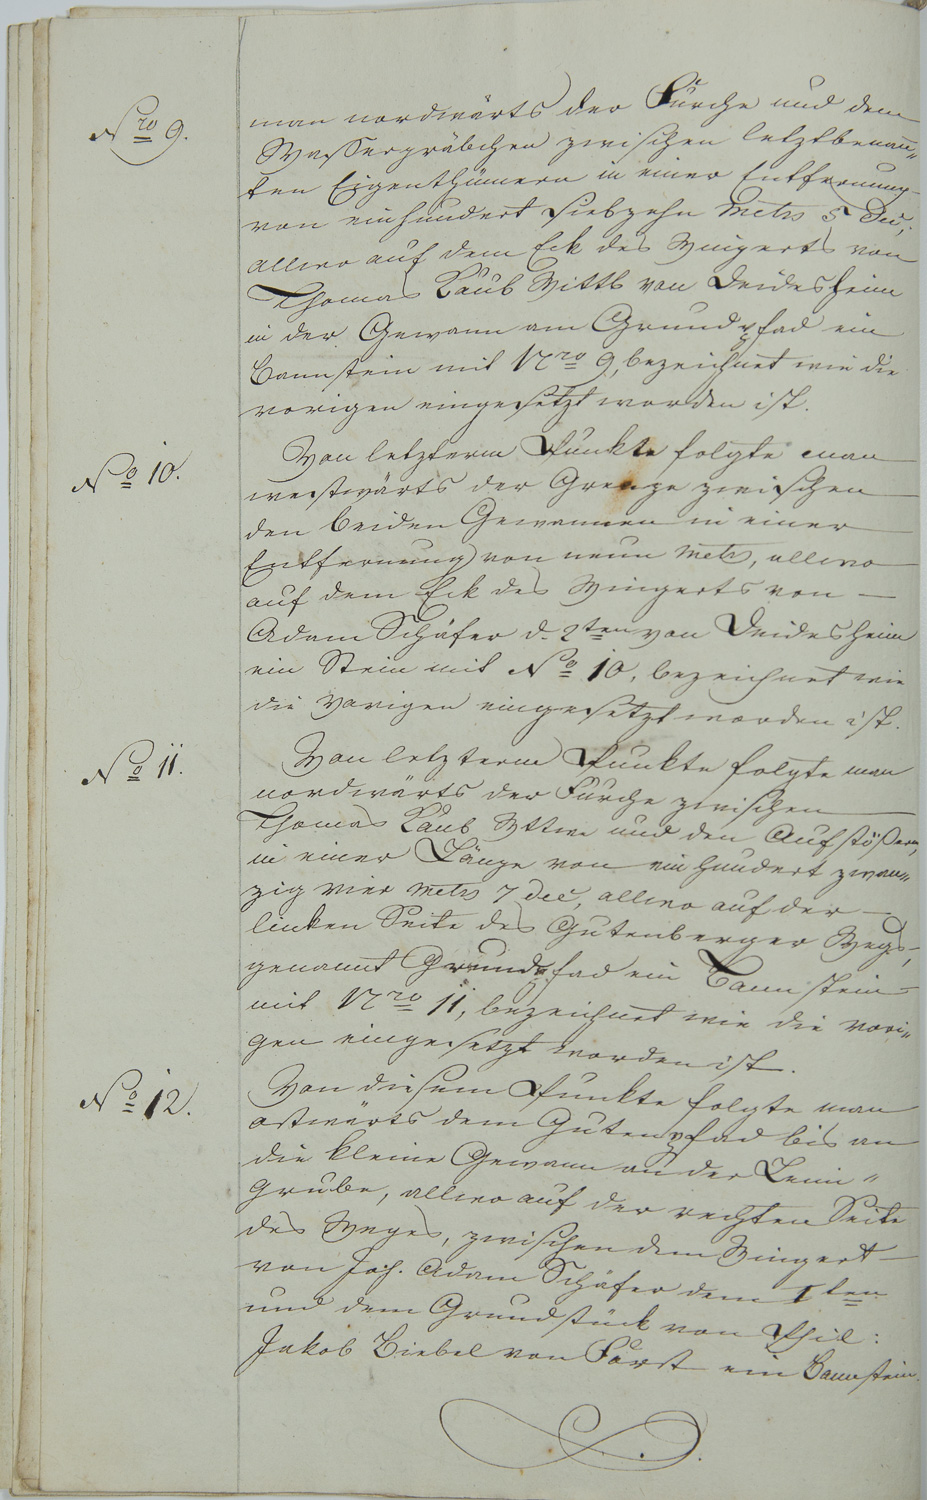 Nro 9.
man nordwärts der Fürche und dem
Wassergräbchen zwischen letztbenan„
ten Eigenthümern in einer Entfernung
von einhundert siebzehn Metrs 5 Dec;
allwo auf dem Eck des Wingerts von
Thomas Laub Wittb von Deidesheim
in der Gewann am Grundpfad ein
Bannstein mit Nro 9, bezeichnet wie die
vorigen eingesetzt worden ist.
No 10.
Von letzterm Punkte folgte man
westwärts der Grenze zwischen
den beiden Gewannen in einer
Entfernung von neun Metrs, allwo
auf dem Eck des Wingerts von —
Adam Schäfer d. 2ten von Deidesheim
ein Stein mit No 10, bezeichnet wie
die vorigen eingesetzt worden ist.
No 11.
Von letzterm Punkte folgte man
nordwärts der Fürche zwischen
Thomas Laub Wttwe und den Aufstößern,
in einer Länge von einhundert zwan„
zig vier Metrs 7 dec, allwo auf der —
linken Seite des Gutenberger Wegs,
genannt Grundpfad ein Bannstein
mit Nro 11, bezeichnet wie die vori„
gen eingesetzt worden ist.
No 12.
Von diesem Punkte folgte man
ostwärts dem Gutenpfad bis an
die kleine Gewann an der Leim„
grube, allwo auf der rechten Seite
des Weges, zwischen dem Wingert
von Joh. Adam Schäfer dem 1ten
und dem Grundstück von Phil:
Jakob Biebel von Forst ein Bannstein